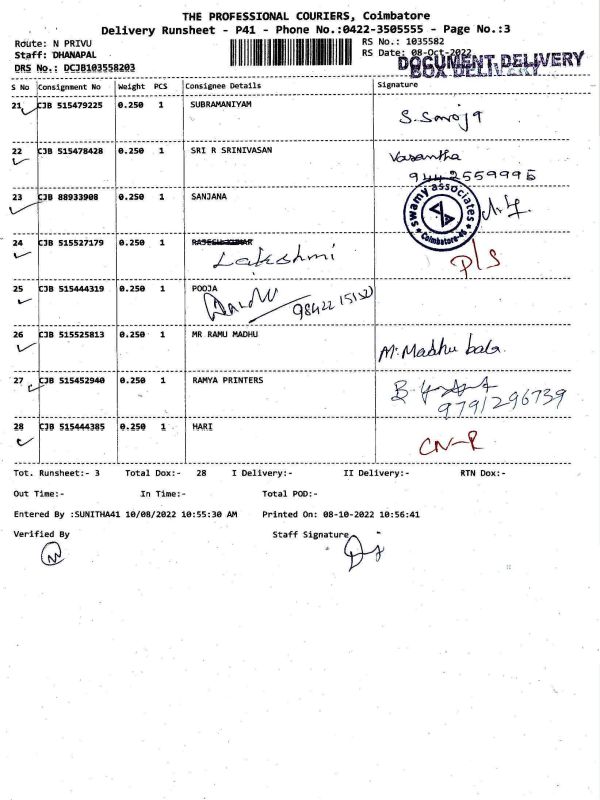 THE PROFESSIONAL COURIERS, Coimbatore
Delivery Runsheet - P41 - Phone No.:0422-3505555 - Page No.:3
Route: N PRIVU
RS No.: 1035582
Staff: DHANAPAL
RS Date: 08-Oct-2022
DRS No.: DCJB103558203
DOCUMENT DELIVERY
BOX DELIVERY
S No Consignment No Weight PCS Consignee Details Signature
21 CJB 515479225 0.250 1 SUBRAMANIYAM
S. Saroja
22 CJB 515478428 0.250 1 SRI R SRINIVASAN Vasantha
9442559995
23 CJB 88933908 0.250 1 SANJANA
swamy associates
Coimbatore-45
24 CJB 515527179 0.250 1 RAJESH KUMAR
Lakshmi P/S
25 CJB 515444319 0.250 1 POOJA
9842215152
26 CJB 515525813 0.250 1 MR RAMU MADHU
M. Madhu bala.
27 CJB 515452940 0.250 1 RAMYA PRINTERS
9791296739
28 CJB 515444385 0.250 1 HARI
CN-R
Tot. Runsheet:- 3 Total Dox:- 28 I Delivery:- II Delivery:- RTN Dox:-
Out Time:- In Time:- Total POD:-
Entered By :SUNITHA41 10/08/2022 10:55:30 AM Printed On: 08-10-2022 10:56:41
Verified By Staff Signature